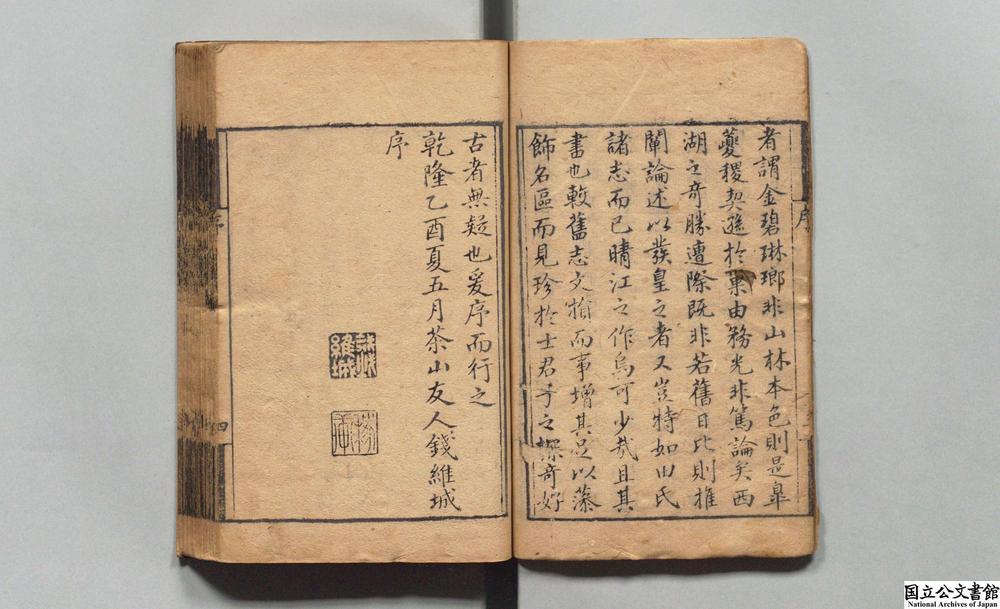 者謂金碧琳瑯非山林本色則是皐
夔稷契遜於巢由務光非篤論矣西
湖之奇勝遭際既非若舊日比則推
闡論述以發皇之者又豈特如田氏
諸志而已晴江之作烏可少哉且其
書也較舊志文損而事增其足以藻
飾名區而見珍於士君子之探奇好
序
三
古者無疑也爰序而行之
乾隆乙酉夏五月茶山友人錢維城
序
維城
序
四
国立公文書館
National Archives of Japan